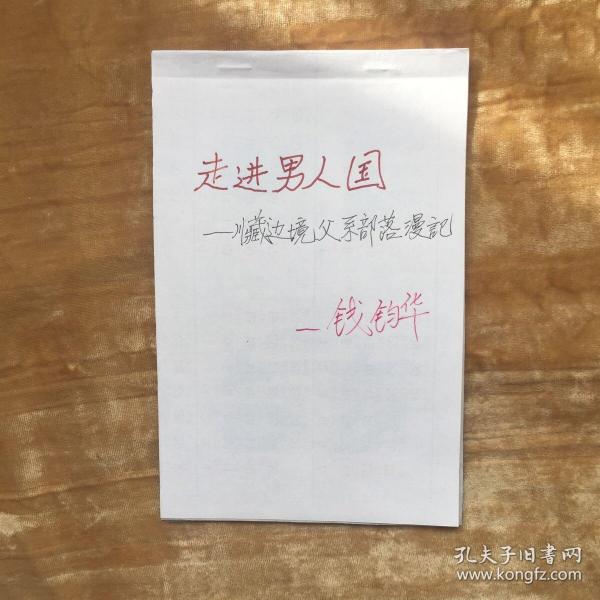 走进男人国
—川藏边境父系部落漫記
—钱钧华
孔夫子旧书网
www.kongfz.com